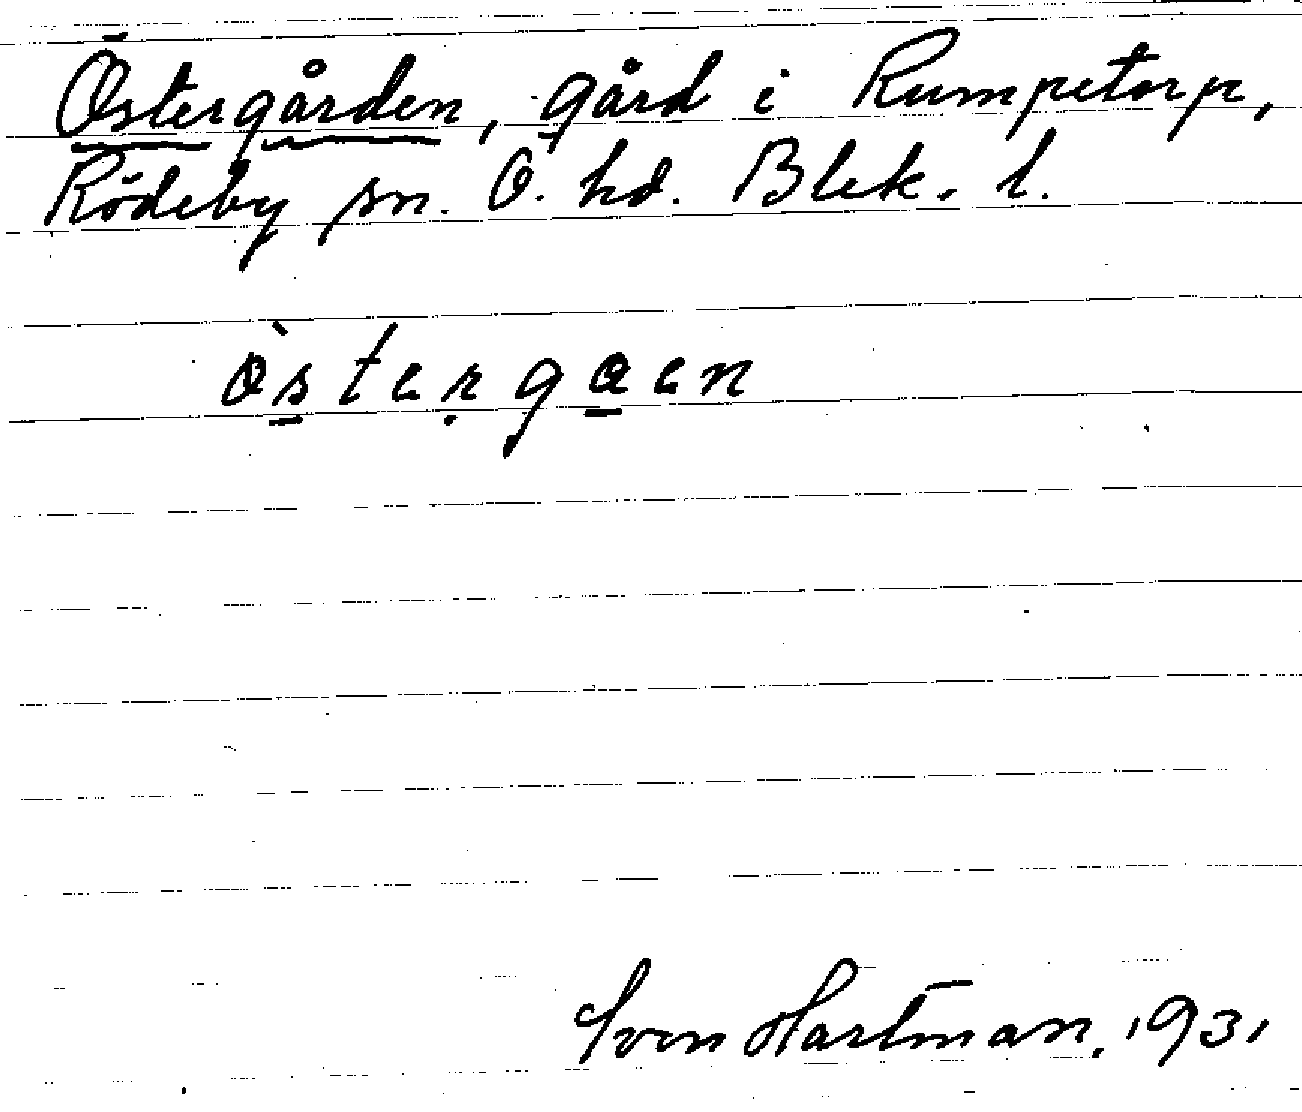 Östergården, gård i Rumpetorp,
Rödeby sn. Ö. hd. Blek. l.
ö̀stergɑen
Sven Hartman. 1931